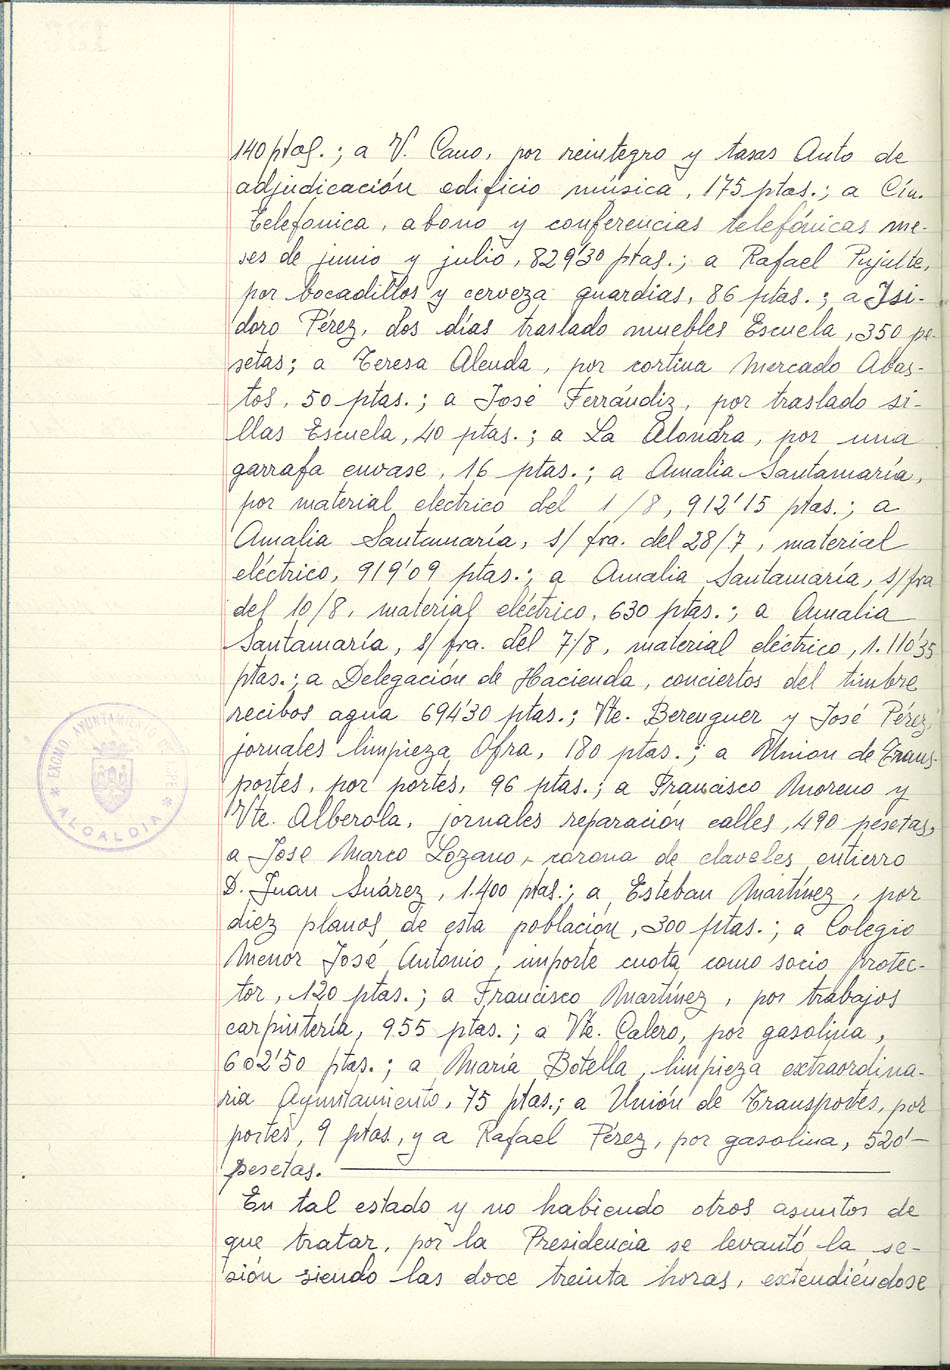 140 ptas.; a V. Cano, por reintegro y tasas Auto de
adjudicación edificio música, 175 ptas.; a Cía.
Telefónica, abono y conferencias telefónicas me-
ses de junio y julio, 829'30 ptas.; a Rafael Pujalte,
por bocadillos y cerveza guardias, 86 ptas.; a Isi-
doro Pérez, dos días traslado muebles Escuela, 350 pe-
setas; a Teresa Alenda, por cortina Mercado Abas-
tos, 50 ptas.; a José Ferrándiz, por traslado si-
llas Escuela, 40 ptas.; a La Alondra, por una
garrafa envase, 16 ptas.; a Amalia Santamaría,
por material electrico del 1/8, 912'15 ptas.; a
Amalia Santamaría, s/ fra. del 28/7, material
eléctrico, 919'09 ptas.; a Amalia Santamaría, s/fra
del 10/8, material eléctrico, 630 ptas.; a Amalia
Santamaría, s/ fra. del 7/8, material eléctrico, 1.110'35
ptas.; a Delegación de Hacienda, conciertos del timbre
recibos agua 694'30 ptas.; Vte. Berenguer y José Pérez,
jornales limpieza Ofra, 180 ptas.; a Union de Trans-
portes, por portes, 96 ptas.; a Francisco Moreno y
Vte. Alberola, jornales reparación calles, 490 pesetas,
a José Marco Lozano, corona de claveles entierro
D. Juan Suárez, 1.400 ptas.; a Esteban Martínez, por
diez planos de esta población, 300 ptas.; a Colegio
Menor José Antonio, importe cuota como socio protec-
tor, 120 ptas.; a Francisco Martínez, por trabajos
carpintería, 955 ptas.; a Vte. Calero, por gasolina,
602'50 ptas.; a María Botella, limpieza extraordina-
ria Ayuntamiento, 75 ptas.; a Unión de Transportes, por
portes, 9 ptas, y a Rafael Pérez, por gasolina, 520'—
pesetas.
En tal estado y no habiendo otros asuntos de
que tratar, por la Presidencia se levantó la se-
sión siendo las doce treinta horas, extendiéndose
EXCMO. AYUNTAMIENTO DE ASPE
* ALCALDIA *